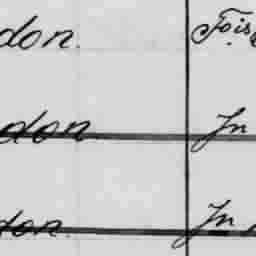 don. Fois
don In
don. In